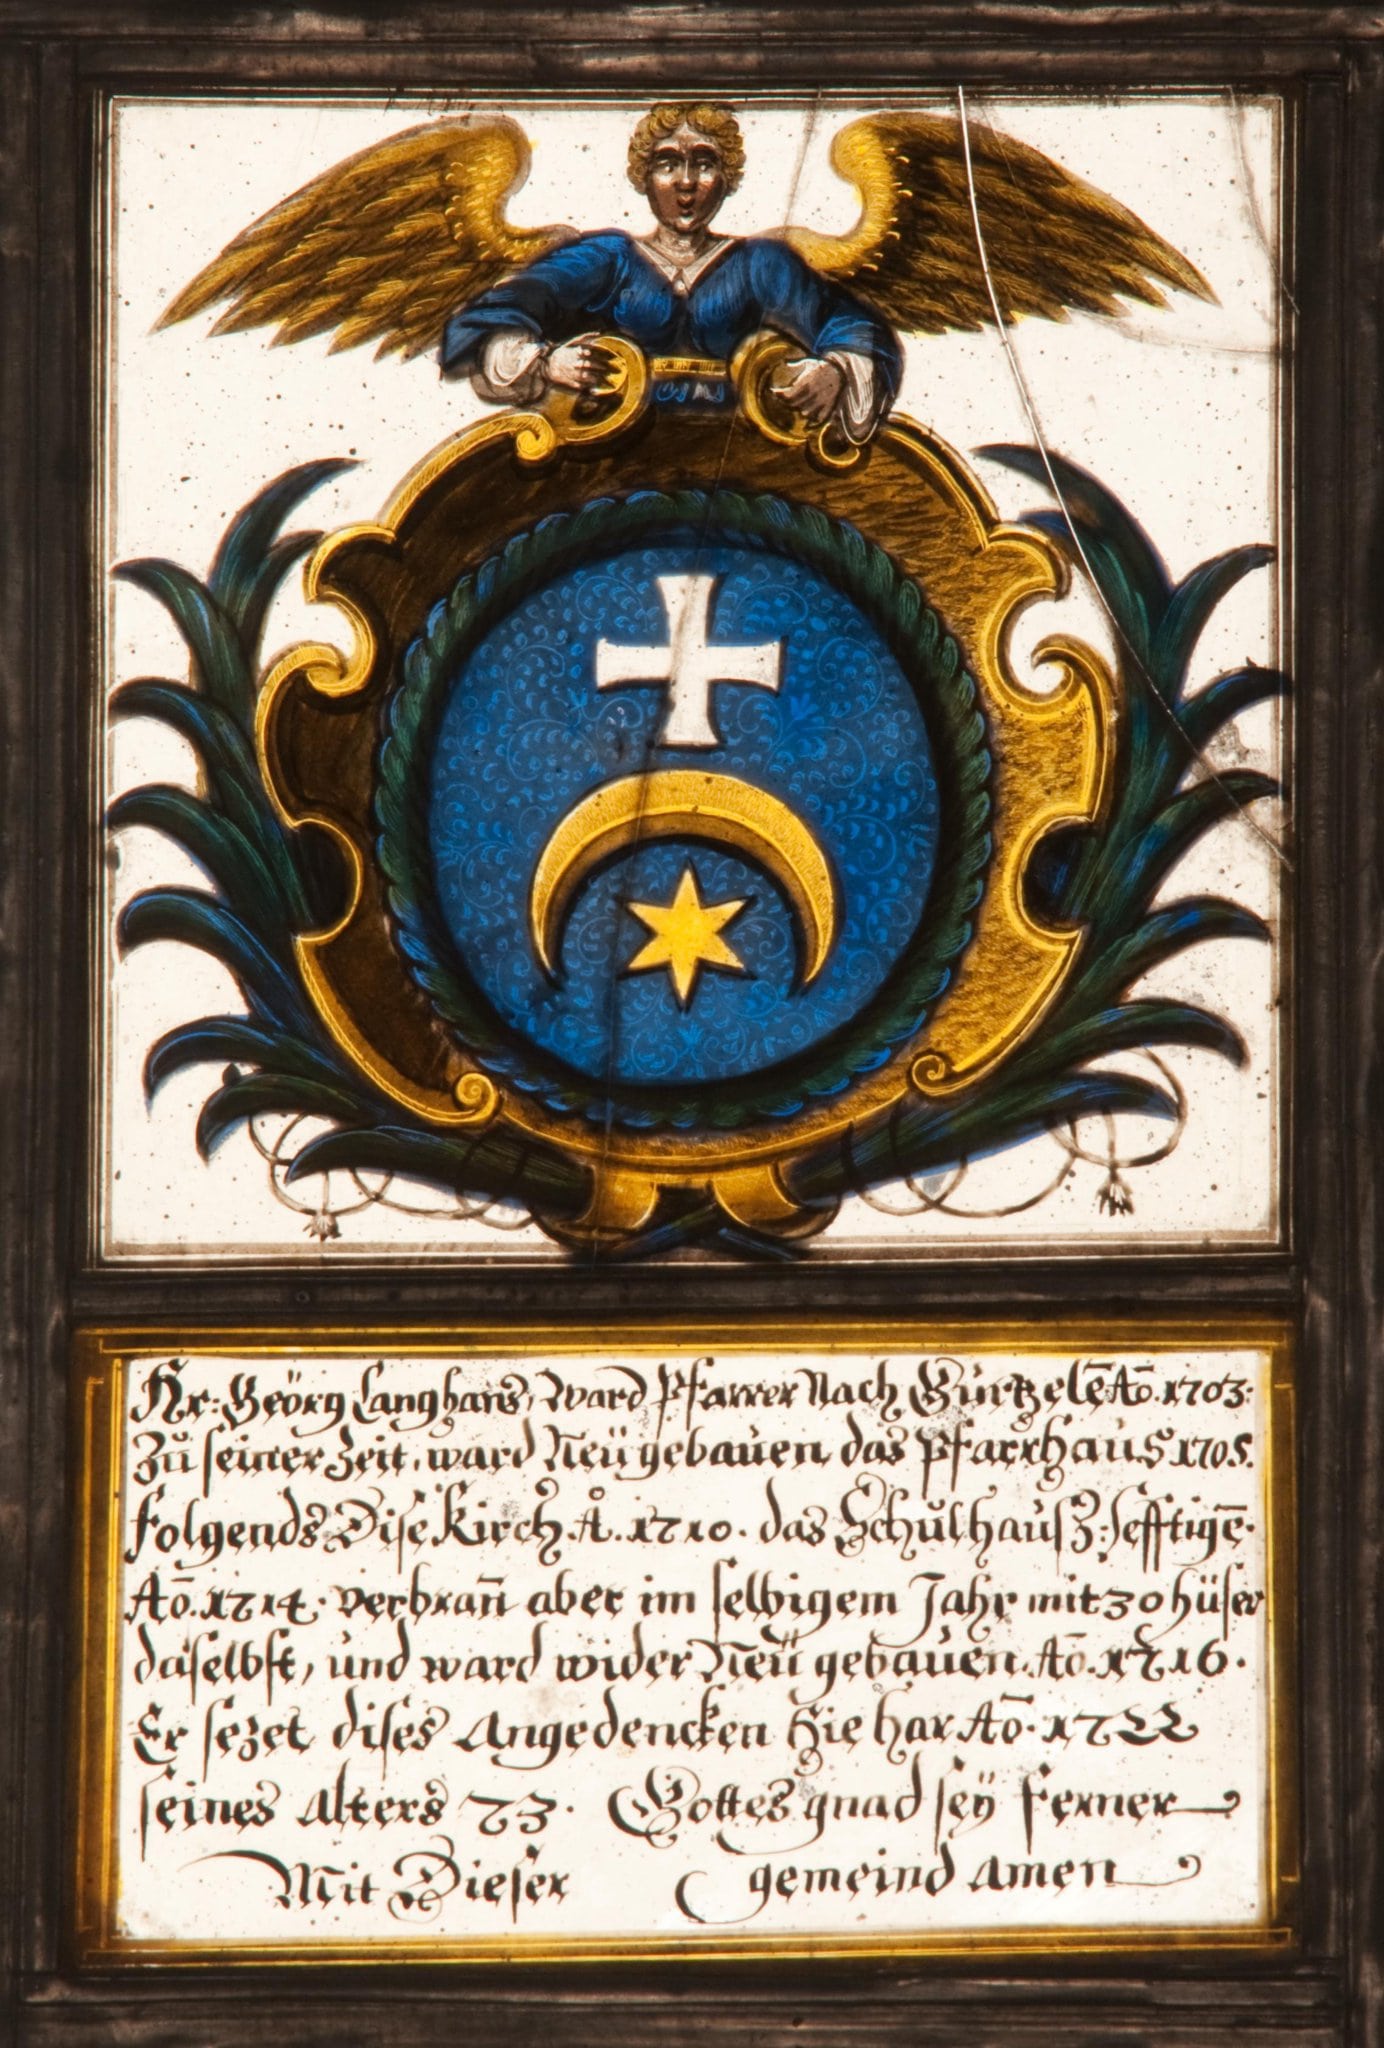 Hr: Geörg Langhans, Ward Pfarrer Nach Gürtzelē Aō. 1703.
Zŭ seiner Zeit, ward Neü gebaŭen das Pfarrhaŭs 1705.
Folgends Dise Kirch. A̐. 1710. das Schŭlhaŭsz: sefftigē.
Aō. 1714. verbran̄ aber im selbigem Jahr mit 30 hüser
daselbst, ŭnd ward wider Neü gebaŭen. Aō. 1716.
Er sezet dises Angedencken Hie har Aō. 1722
seines Alters 73. Gottes gnad seÿ Ferner
Mit Dieser gemeind Amen